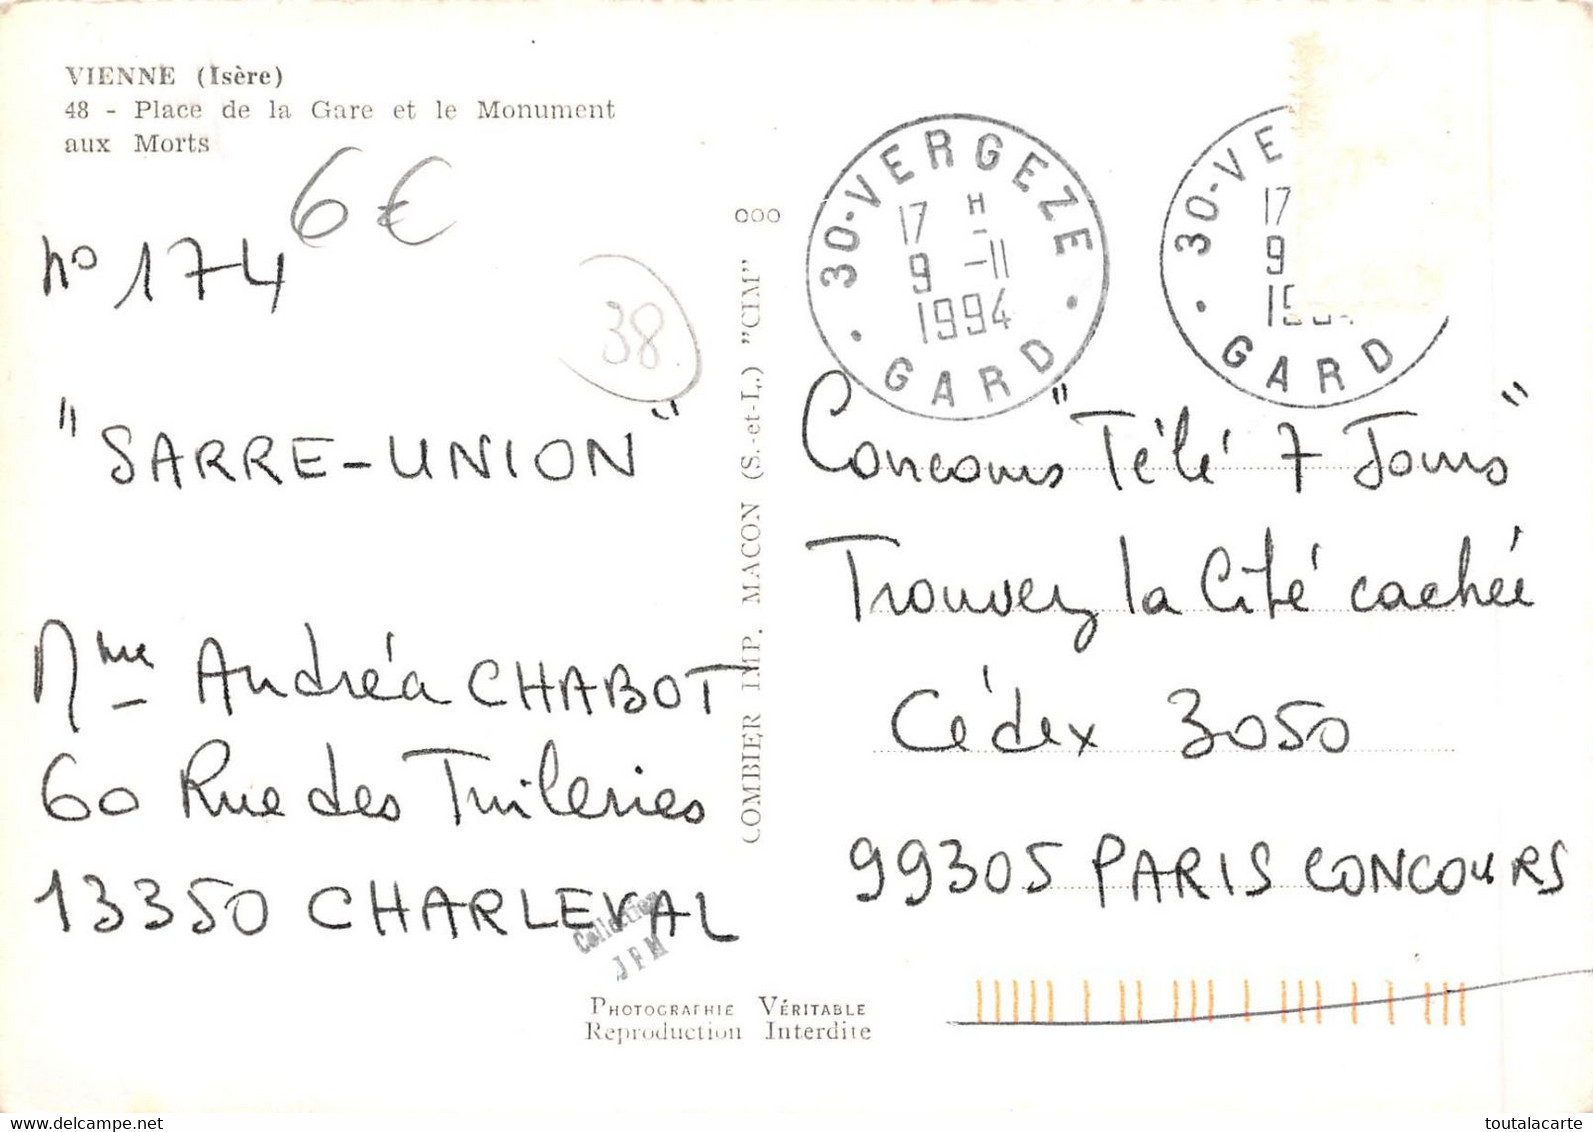 VIENNE (Isère)
48 - Place de la Gare et le Monument
aux Morts
6€
n° 174
38
"SARRE-UNION"
Mme Andréa CHABOT
60 Rue des Tuileries
13350 CHARLEVAL
Collection
JPM
PHOTOGRAPHIE VÉRITABLE
Reproduction Interdite
COMBIER IMP. MACON (S.-et-L.) "CIM"
000
30-VERGEZE
17 H
9 -11
1994
GARD
30-VE
17
9
GARD
Concours "Télé 7 Jours"
Trouvez la Cité cachée
Cédex 3050
99305 PARIS CONCOURS
toutalacarte